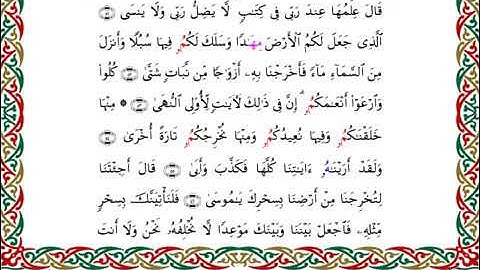 قَالَ عِلْمُهَا عِندَ رَبِّى فِى كِتَـٰبٍ لَّا يَضِلُّ رَبِّى وَلَا يَنسَى
ٱلَّذِى جَعَلَ لَكُمُ ٱلْأَرْضَ مِهَـٰدًا وَسَلَكَ لَكُمُۥ فِيهَا سُبُلًا وَأَنزَلَ
مِنَ ٱلسَّمَآءِ مَآءً فَأَخْرَجْنَا بِهِۦٓ أَزْوَٰجًا مِّن نَّبَاتٍ شَتَّىٰ كُلُوا۟
وَٱرْعَوْا۟ أَنْعَـٰمَكُمُۥٓ إِنَّ فِى ذَٰلِكَ لَـَٔايَـٰتٍ لِّأُو۟لِى ٱلنُّهَىٰ ۞ مِنْهَا
خَلَقْنَـٰكُمُۥ وَفِيهَا نُعِيدُكُمُۥ وَمِنْهَا نُخْرِجُكُمُۥ تَارَةً أُخْرَىٰ
وَلَقَدْ أَرَيْنَـٰهُۥ ءَايَـٰتِنَا كُلَّهَا فَكَذَّبَ وَأَبَىٰ قَالَ أَجِئْتَنَا
لِتُخْرِجَنَا مِنْ أَرْضِنَا بِسِحْرِكَ يَـٰمُوسَىٰ فَلَنَأْتِيَنَّكَ بِسِحْرٍ
مِّثْلِهِۦ فَٱجْعَلْ بَيْنَنَا وَبَيْنَكَ مَوْعِدًا لَّا نُخْلِفُهُۥ نَحْنُ وَلَآ أَنتَ